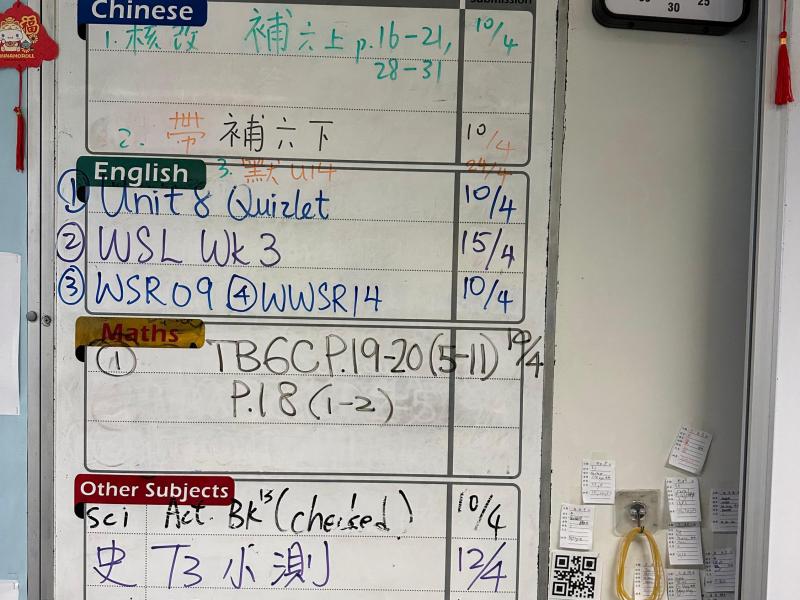 Chinese
1. 核改 補六上 p.16-21, 10/4
28-31
2. 帶 補六下 10/4
English 3. 默 u14 24/4
① Unit 8 Quizlet 10/4
② WSL Wk 3 15/4
③ WSR09 ④ WWSR14 10/4
Maths
① TB6C P.19-20 (5-11) 10/4
P.18 (1-2)
Other Subjects
sci Act. Bk 13 10/4
史 T3 小測 12/4
30
25